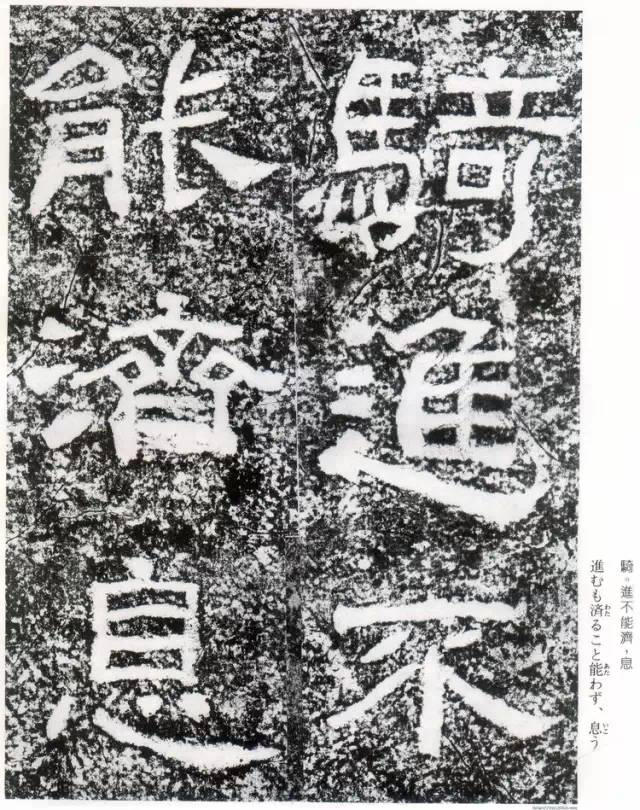 騎進不
能濟息
騎。進不能濟，息
進むも済ること能わず、息う
わた
あた
いこ